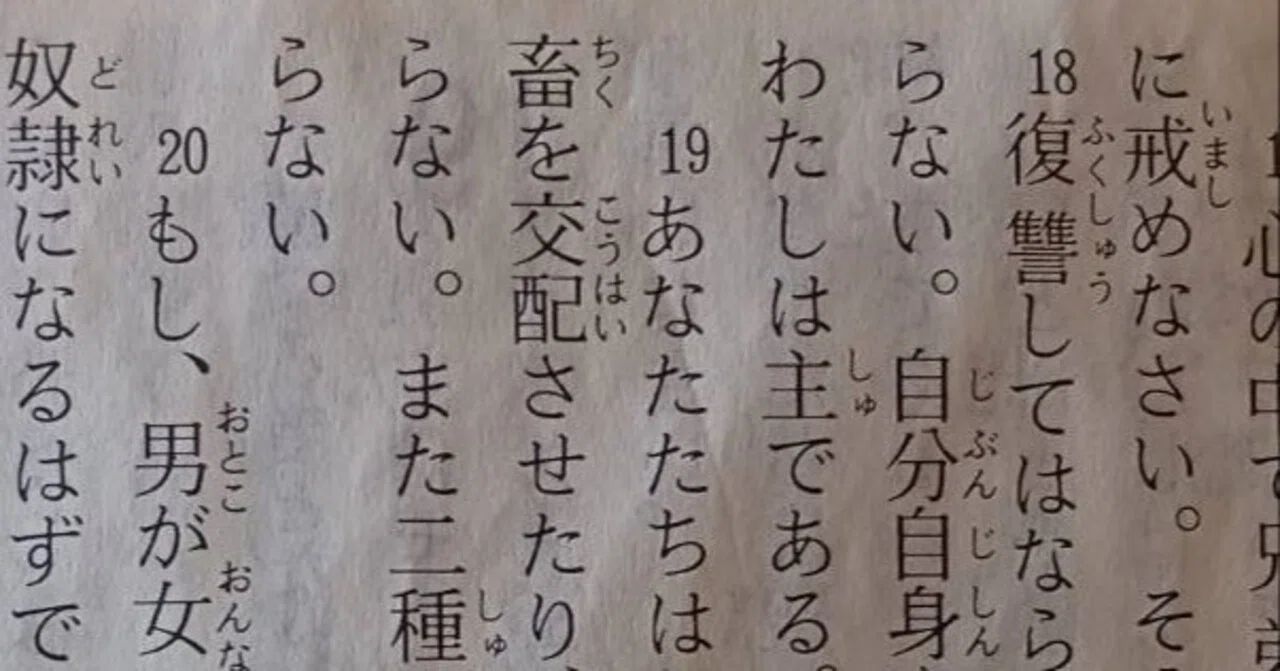 心の中で兄
に戒めなさい。そ
18復讐してはなら
らない。自分自身
わたしは主である。
19あなたたちは
畜を交配させたり、
らない。また二種
らない。
20もし、男が女
奴隷になるはずで